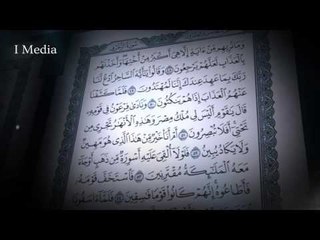 I Media
وَمَا نُرِيهِم مِّنْ ءَايَةٍ إِلَّا هِىَ أَكْبَرُ مِنْ أُخْتِهَا وَأَخَذْنَٰهُم
بِٱلْعَذَابِ لَعَلَّهُمْ يَرْجِعُونَ ٤٨ وَقَالُوا۟ يَٰٓأَيُّهَ ٱلسَّاحِرُ ٱدْعُ لَنَا
رَبَّكَ بِمَا عَهِدَ عِندَكَ إِنَّنَا لَمُهْتَدُونَ ٤٩ فَلَمَّا كَشَفْنَا
عَنْهُمُ ٱلْعَذَابَ إِذَا هُمْ يَنكُثُونَ ٥٠ وَنَادَىٰ فِرْعَوْنُ فِى قَوْمِهِۦ
قَالَ يَٰقَوْمِ أَلَيْسَ لِى مُلْكُ مِصْرَ وَهَٰذِهِ ٱلْأَنْهَٰرُ تَجْرِى مِن
تَحْتِىٓ أَفَلَا تُبْصِرُونَ ٥١ أَمْ أَنَا۠ خَيْرٌ مِّنْ هَٰذَا ٱلَّذِى هُوَ مَهِينٌ
وَلَا يَكَادُ يُبِينُ ٥٢ فَلَوْلَآ أُلْقِىَ عَلَيْهِ أَسْوِرَةٌ مِّن ذَهَبٍ أَوْ جَآءَ
مَعَهُ ٱلْمَلَٰٓئِكَةُ مُقْتَرِنِينَ ٥٣ فَٱسْتَخَفَّ قَوْمَهُۥ
فَأَطَاعُوهُ إِنَّهُمْ كَانُوا۟ قَوْمًا فَٰسِقِينَ ٥٤ فَلَمَّآ ءَاسَفُونَا